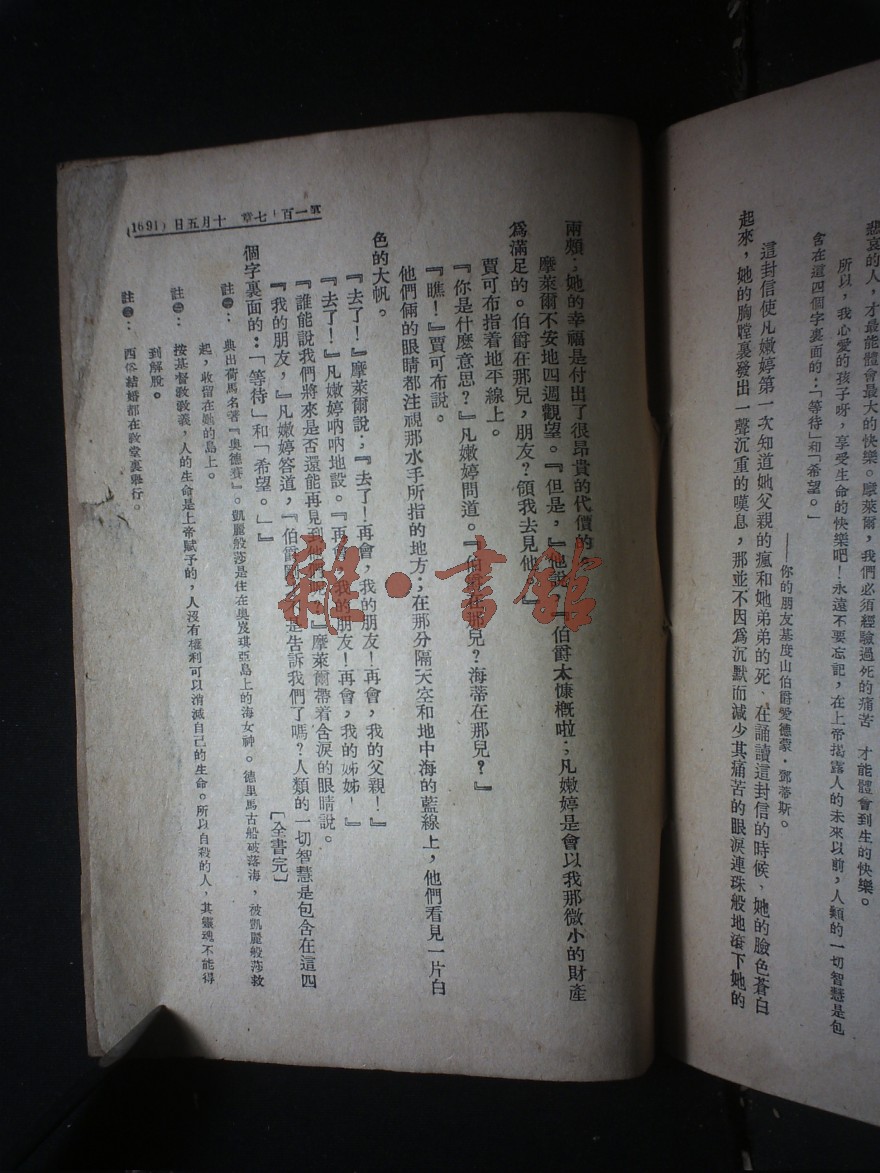 悲哀的人，才最能體會最大的快樂。摩萊爾，我們必須經驗過死的痛苦　才能體會到生的快樂。
所以，我心愛的孩子呀，享受生命的快樂吧！永遠不要忘記，在上帝揭露人的未來以前，人類的一切智慧是包
含在這四個字裏面的：「等待」和「希望。」
——你的朋友基度山伯爵愛德蒙·鄧蒂斯。
這封信使凡嫩婷第一次知道她父親的瘋和她弟弟的死、在誦讀這封信的時候、她的臉色蒼白
起來，她的胸膛裏發出一聲沉重的嘆息，那並不因為沉默而減少其痛苦的眼淚連珠般地滾下她的
兩頰；她的幸福是付出了很昂貴的代價的。
摩萊爾不安地四週觀望。『但是，』他說，『伯爵太慷概啦；凡嫩婷是會以我那微小的財產
為滿足的。伯爵在那兒，朋友？領我去見他。』
賈可布指着地平線上。
『你是什麽意思？』凡嫩婷問道。『伯爵在那兒？海蒂在那兒？』
『瞧！』賈可布說。
他們倆的眼睛都注視那水手所指的地方；在那分隔天空和地中海的藍線上，他們看見一片白
色的大帆。
『去了！』摩萊爾說；『去了！再會，我的朋友！再會，我的父親！』
『去了！』凡嫩婷吶吶地說。『再會，我的朋友！再會，我的姊姊！』
『誰能說我們將來是否還能再見到他們呢？』摩萊爾帶着含淚的眼睛說。
『我的朋友，』凡嫩婷答道，『伯爵剛是告訴我們了嗎？人類的一切智慧是包含在這四
個字裏面的：「等待」和「希望。」』
［全書完］
註㊀：奥出荷馬名著『奥德賽』。凱麗般莎是住在奥岌琪亞島上的海女神。德里馬古船破落海，被凱麗般莎救
起，收留在她的島上。
註㊁：按基督教教義，人的生命是上帝賦予的，人沒有權利可以消滅自己的生命。所以自殺的人，其靈魂不能得
到解脫。
註㊂：西俗結婚都在教堂裏舉行。
第一百十七章 十月五日 (1691)
雜·書館